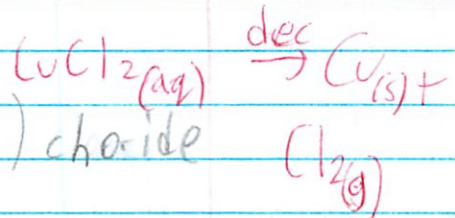 CuCl2(aq) dec→ Cu(s) +
) choride Cl2(g)